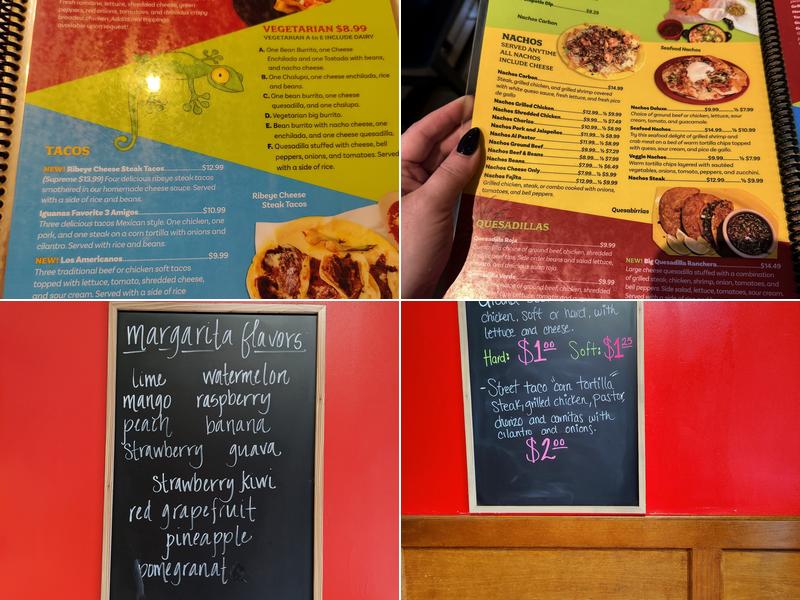 Tacos ramone, lettuce, shredded cheese, green
peppers, red onions, tomatoes, and delicious crispy
breaded chicken. Additional toppings
available upon request!
VEGETARIAN $8.99
VEGETARIAN A to E INCLUDE DAIRY
A. One Bean Burrito, one Cheese
Enchilada and one Tostada with beans,
and nacho cheese.
B. One Chalupa, one cheese enchilada, rice
and beans.
C. One bean burrito, one cheese
quesadilla, and one chalupa.
D. Vegetarian big burrito.
E. Bean burrito with nacho cheese, one
enchilada, and one cheese quesadilla.
F. Quesadilla stuffed with cheese, bell
peppers, onions, and tomatoes. Served
with beans.
TACOS
NEW! Ribeye Cheese Steak Tacos $12.99
(Supreme $13.99) Four delicious ribeye steak tacos
smothered in our homemade cheese sauce. Served
with a side of rice.
Iguanas Favorite 3 Amigos $10.99
Three delicious tacos Mexican style. One chicken, one
pork, and one steak on a corn tortilla with onions and
cilantro. Served with rice and beans.
NEW! Los Americanos $9.99
Three traditional beef or chicken soft tacos
topped with lettuce, tomato, shredded cheese,
and sour cream. Served with a side of rice
Ribeye Cheese
Steak Tacos
Dip
$8.29
Nachos Carbon
NACHOS
SERVED ANYTIME
ALL NACHOS
INCLUDE CHEESE
Nachos Carbon $14.99
Steak, grilled chicken, and grilled shrimp covered
with white queso sauce, fresh lettuce, and fresh pico
de gallo
Nachos Grilled Chicken $12.99 ½ $9.99
Nachos Shredded Chicken $9.99 ½ $7.49
Nachos Chorizo $10.99 ½ $8.99
Nachos Pork and Jalapeños $11.99 ½ $8.99
Nachos Al Pastor $11.99 ½ $8.99
Nachos Ground Beef $9.99 ½ $7.29
Nachos Beef & Beans $8.99 ½ $7.99
Nachos Beans $7.99 ½ $6.49
Nachos Cheese Only $7.99 ½ $5.99
Nachos Fajita $12.99 ½ $9.99
Grilled chicken, steak, or combo cooked with onions,
tomatoes, and bell peppers.
Seafood Nachos
Nachos Deluxe $9.99 ½ $7.99
Choice of ground beef or chicken, lettuce, sour
cream, tomato, and guacamole.
Seafood Nachos $14.99 ½ $10.99
Try this seafood delight of grilled shrimp and
crab meat on a bed of warm tortilla chips topped
with queso, sour cream, and pico de gallo.
Veggie Nachos $9.99 ½ $7.99
Warm tortilla chips layered with sautéed
vegetables, onions, tomato, peppers, and zucchini.
Nachos Steak $12.99 ½ $9.99
Quesabirrias
QUESADILLAS
Quesadilla Roja $9.99
choice of ground beef, chicken, shredded
Side order beans and salad lettuce,
and delicious salsa roja.
Verde $9.99
choice of ground beef, chicken, shredded
NEW! Big Quesadilla Ranchera $14.49
Large cheese quesadilla stuffed with a combination
of grilled steak, chicken, shrimp, onion, tomatoes, and
bell peppers. Side salad, lettuce, tomatoes, sour cream.
Served with a side of
margarita flavors
lime watermelon
mango raspberry
peach banana
Strawberry guava
Strawberry kiwi
red grapefruit
pineapple
pomegranat
Ground
chicken, soft or hard, with
lettuce and cheese.
Hard: $1.00 Soft: $1.25
-Street taco "corn tortilla"
Steak, grilled chicken, pastor,
chorizo and carnitas with
cilantro and onions.
$2.00